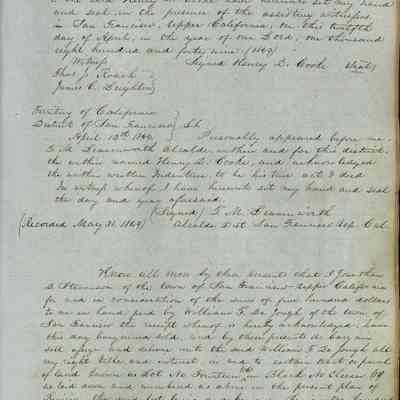 and seal, in the presence of the subscribing witnesses,
in San Francisco, Upper California, on this twelfth
day of April, in the year of our Lord, one thousand
eight hundred and forty nine (1849)
Witness Signed Henry D. Cooke (Seal)
Thos J Roach
James C. Leighton
Territory of California
District of San Francisco } SS.
April 12th 1849. Personally appeared before me
T. M. Leavenworth Alcalde, within and for this district,
the within named Henry D. Cooke, and acknowledged
the within written Indenture, to be his true act & deed
In witness whereof I have hereunto set my hand and seal
the day and year aforesaid.
(Signed) T. M. Leavenworth
(Recorded May 31. 1849) Alcalde Dist. San Francisco Upr. Cal.
Know all men by these presents that I Jonathan
D. Stevenson of the town of San Francisco Upper California
for and in consideration of the sum of five thousand dollars
to me in hand paid by William F. De Jongh of the town of
San Francisco the receipt whereof is hereby acknowledged; have
this day bargained sold, and by these presents do bargain
sell assign and release unto the said William F. De Jongh all
my right title and interest in and to certain lot or parcel
of land known as Lot No Fourteen in Block No Eleven
as laid down and numbered as above in the present plan of